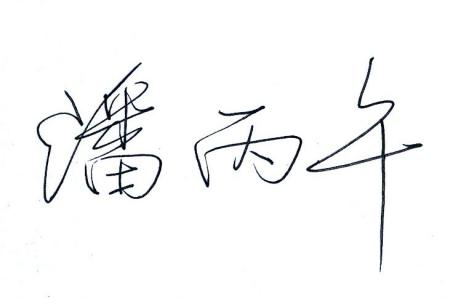 潘丙午